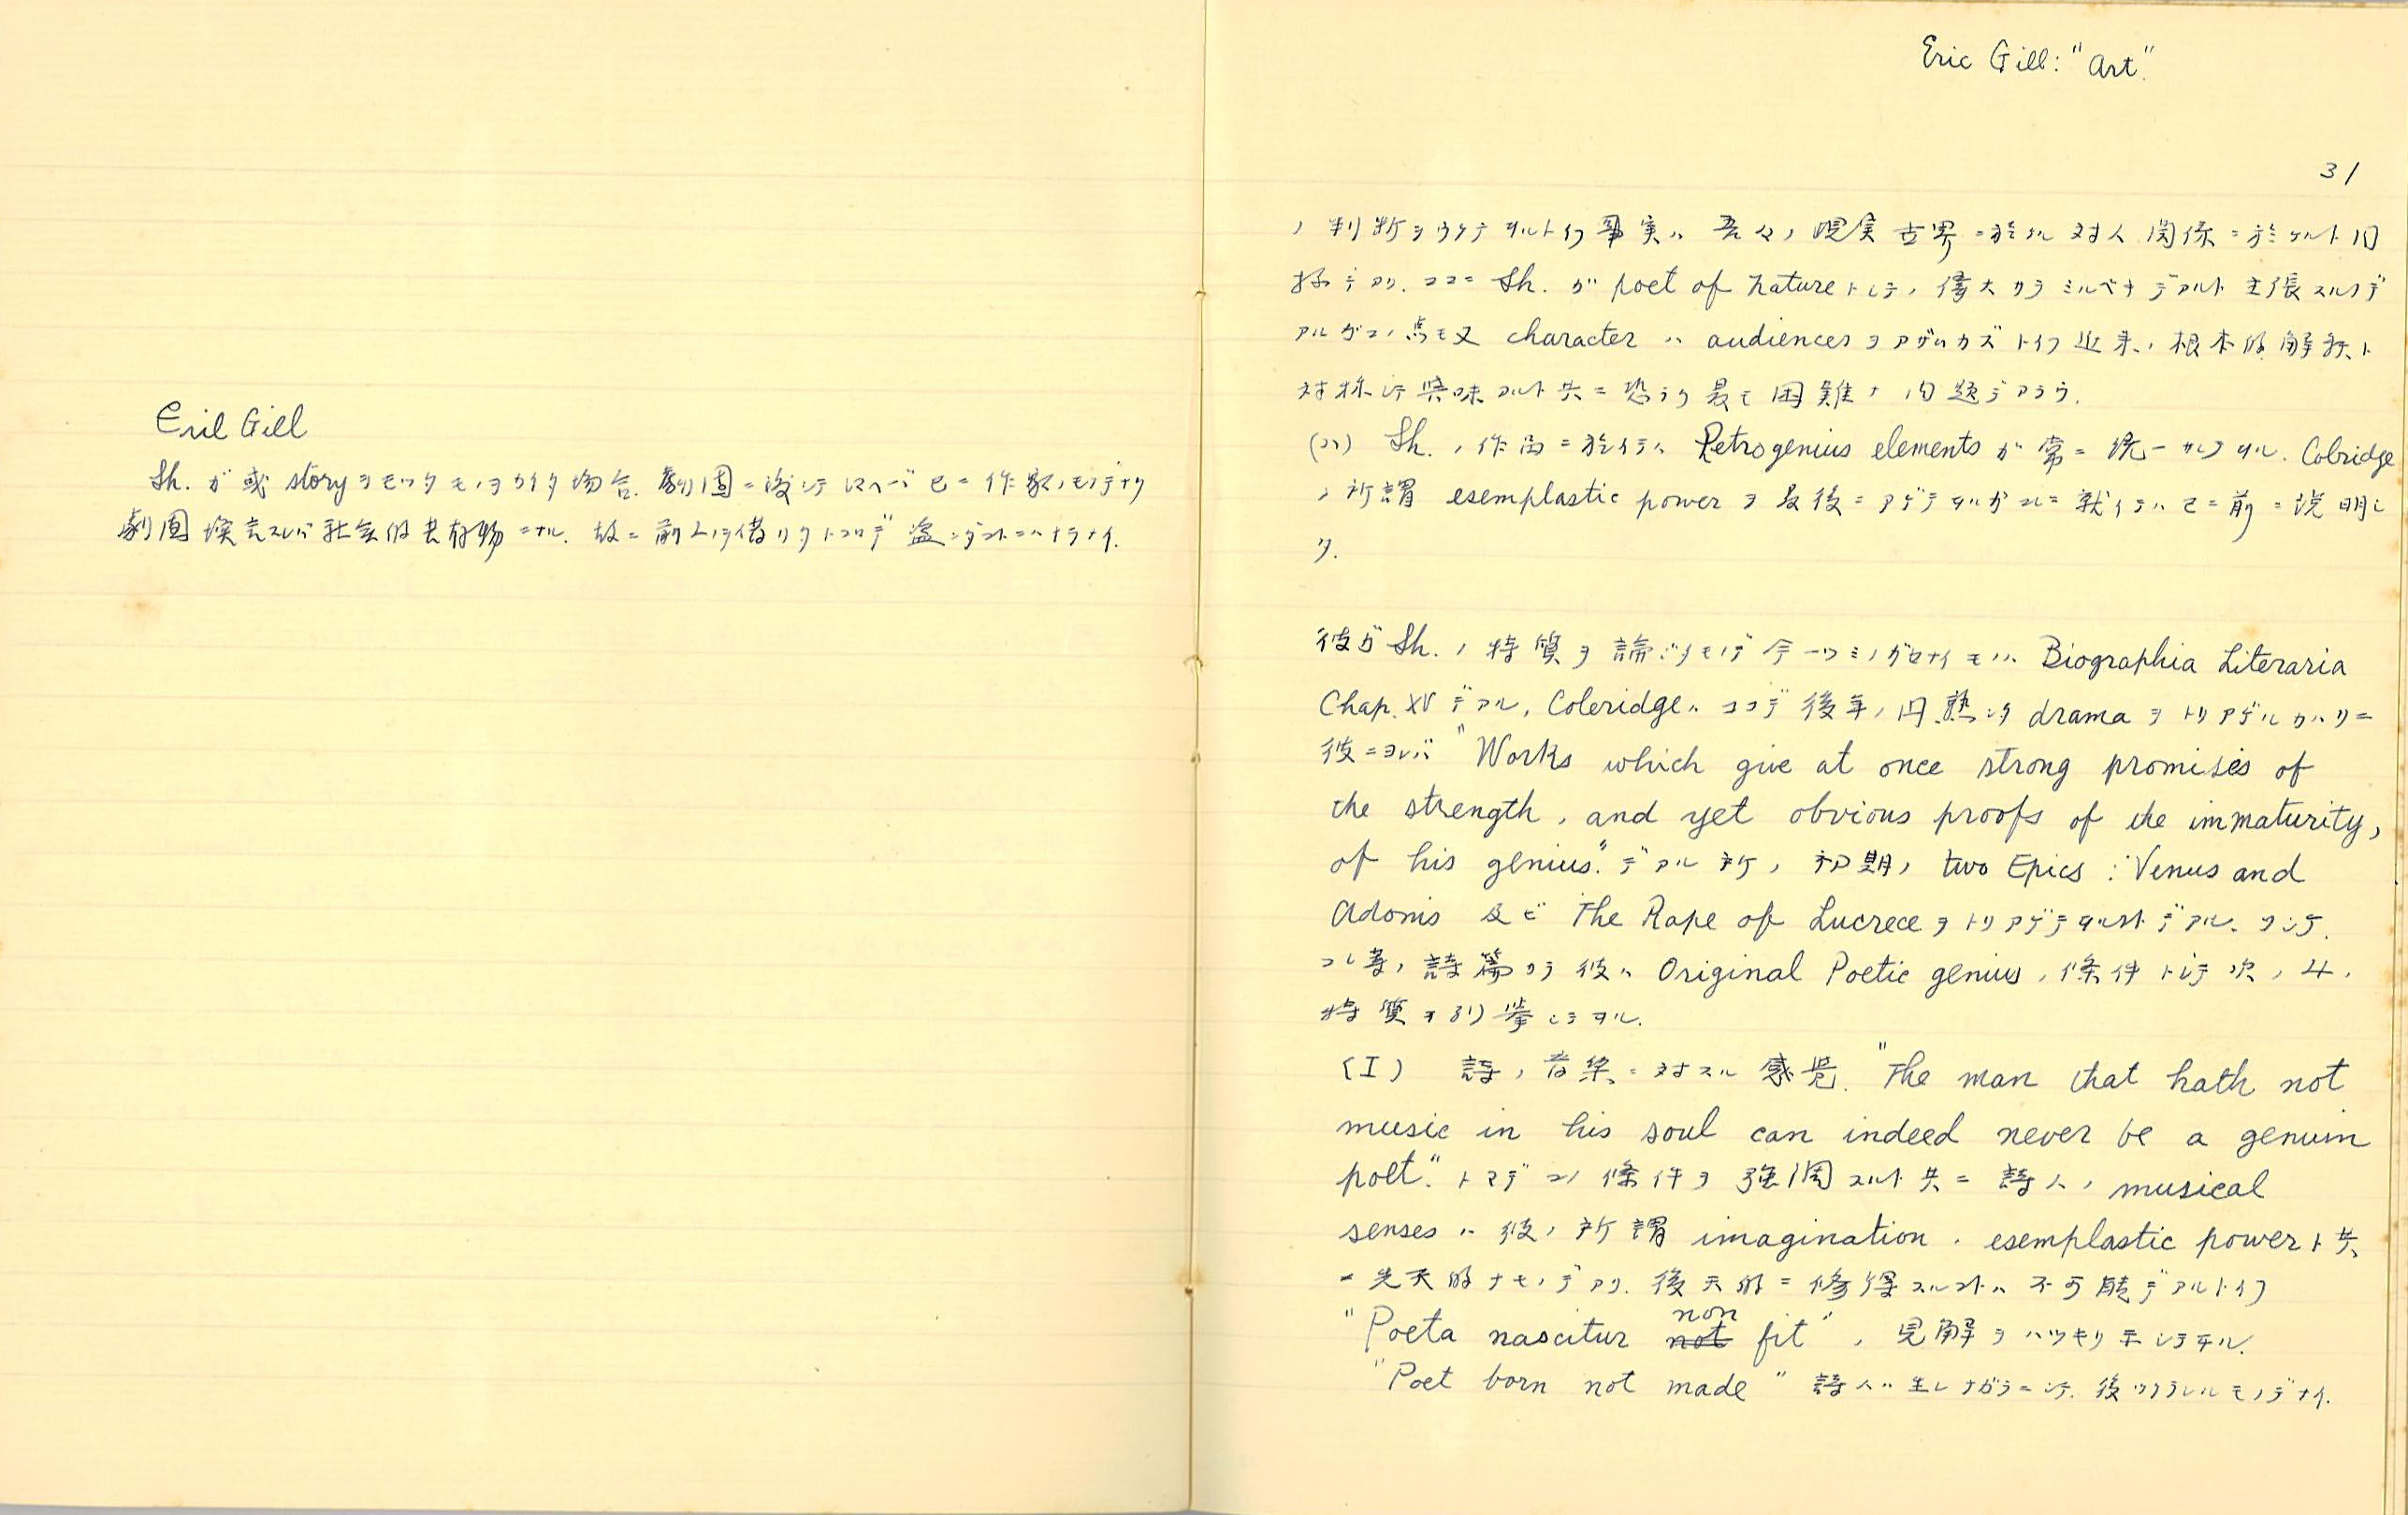 Eril Gill
Sh. ガ或 story ヲモッタモノヲカイタ場合. 劇団ニ渡シテシマヘバ已ニ作家ノモノデナク
劇団 スレバ社会的共有物ニナル. 故ニ前人ノヲ借リタトコロデ盗ンダコトニハナラナイ.
Eric Gill: "Art".
31
ノ判断ヲウケテヰルトイフ事実ハ 吾々ノ現実世界ニ於ケル対人関係ニ於ケルト同
様デアリ. ココニ Sh. ガ poet of nature トシテノ偉大カラミルベキデアルト主張スルノデ
アルガコノ点モ又 character ハ audiences ヲアザムカズトイフ近来ノ根本的解釈ト
対称シテ興味アルト共ニ恐ラク最モ困難ナ問題デアラウ.
(ハ) Sh. ノ作品ニ於イテハ Retrogenius elements ガ常ニ統一サレテヰル. Colridge
ノ所謂 esemplastic power ヲ最後ニアゲテヰルガコレニ就イテハ已ニ前ニ説明シ
タ.
彼ガ Sh. ノ特質ヲ論ジタモノデ今一ツミノガセナイモノハ Biographia Literaria
Chap. XV デアル. Coleridge ハココデ後年ノ円熟シタ drama ヲトリアゲルカハリニ
彼ニヨレバ "Works which give at once strong promises of
the strength, and yet obvious proofs of the immaturity,
of his genius." デアル所ノ初期ノ two Epics : Venus and
Adonis 及ビ The Rape of Lucrece ヲトリアゲテヰルコトデアル. ソシテ.
コレ等ノ詩篇カラ彼ハ Original Poetic genius ノ條件トシテ次ノ 4ノ
特質ヲ列挙シテヰル.
(I) 詩ノ音楽ニ対スル感覚. "The man that hath not
music in his soul can indeed never be a genuin
poet." トマデコノ條件ヲ強調スルト共ニ詩人ノ musical
senses ハ彼ノ所謂 imagination . esemplastic power ト共
ニ先天的ナモノデアリ. 後天的ニ修得スルコトハ不可能デアルトイフ
"Poeta nascitur non fit" ノ見解ヲハツキリ示シテヰル.
"Poet born not made" 詩人ハ生レナガラニシテ. 後ツクラレルモノデナイ.